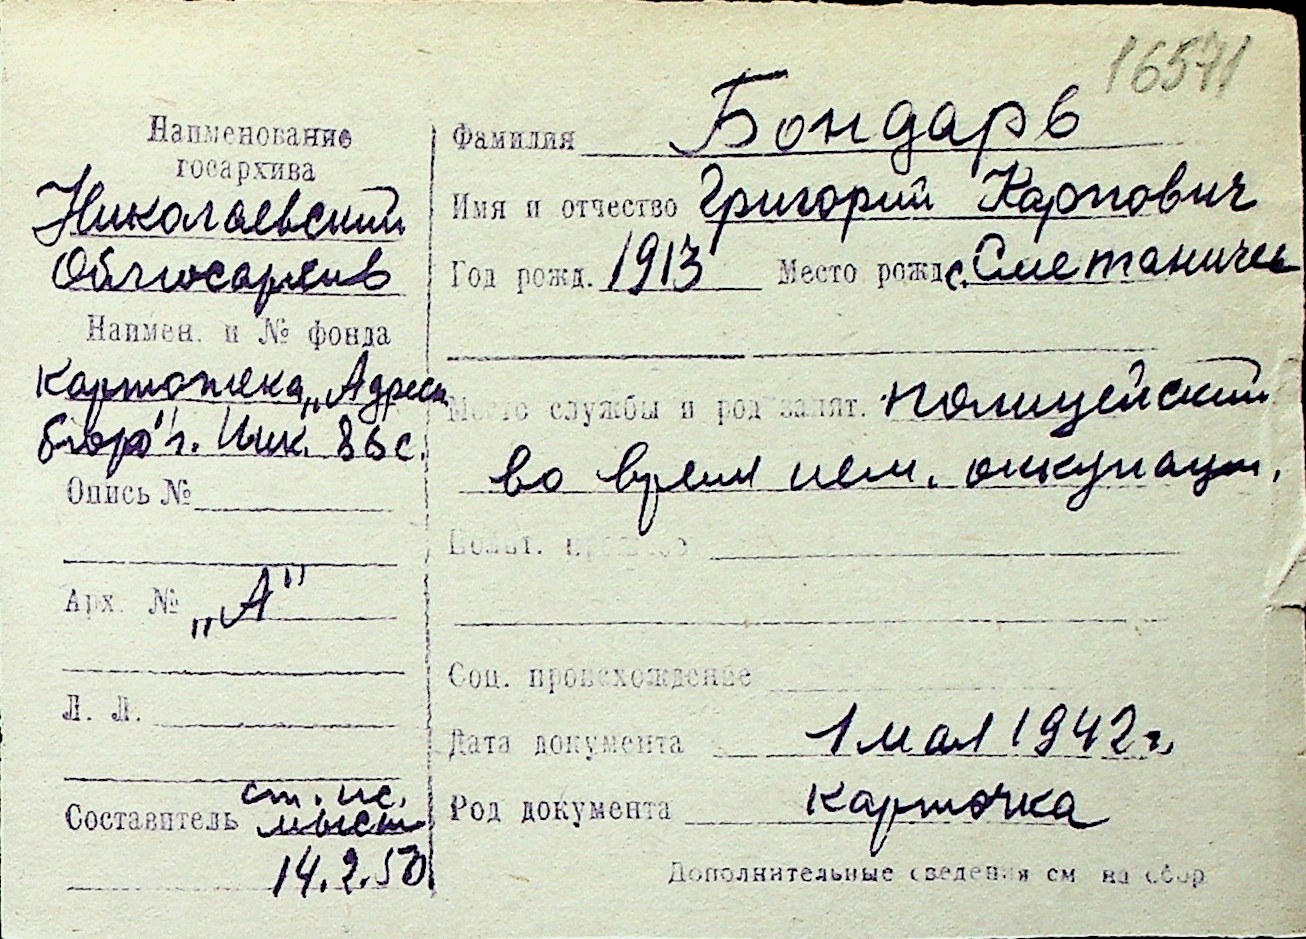 16571
Наименование
госархива
Николаевский
Облгосархив
Наимен. и № фонда
Картотека „Адресн.
бюро" г. Ник. 86 с.
Опись №
Арх. № „А"
Л. Л.
ст. ис.
Составитель
14.2.50
Фамилия Бондарь
Имя и отчество Григорий Карпович
Год рожд. 1913 Место рожд с. Сметаничев
Место службы и род занят. полицейский
во время нем. оккупации.
Соц. происхождение
Дата документа 1 мая 1942 г.
Род документа карточка
Дополнительные сведения см на обор